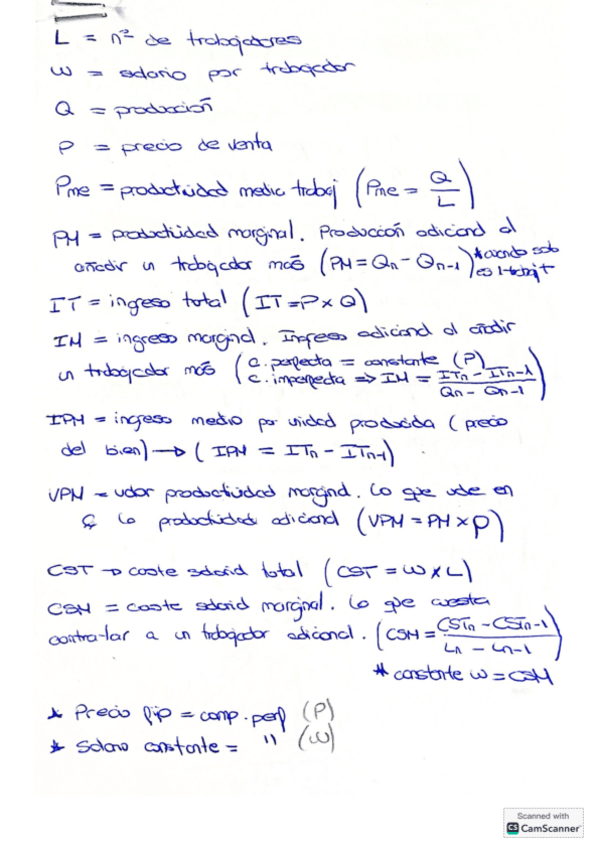 L = nº de trabajadores
W = salario por trabajador
Q = producción
P = precio de venta
Pme = productividad media trabaj (Pme = Q/L)
PM = productividad marginal. Producción adicional al
añadir un trabajador más (PM = Qn - Qn-1) * cuando solo es 1 trabaj +
IT = ingreso total (IT = P x Q)
IM = ingreso marginal. Ingreso adicional al añadir
un trabajador más (C. perfecta = constante (P)
C. imperfecta => IM = ITn - ITn-1 / Qn - Qn-1)
IPM = ingreso medio por unidad producida (precio
del bien) → (IPM = ITn - ITn-1)
VPM = valor productividad marginal. Lo que vale en
€ la productividad adicional (VPM = PM x P)
CST → coste salarial total (CST = W x L)
CSM = coste salarial marginal. Lo que cuesta
contratar a un trabajador adicional. (CSM = CSTn - CSTn-1 / Ln - Ln-1)
* constante W = CSM
* Precio fijo = comp. perf (P)
* Salario constante = " (W)
Scanned with
CS CamScanner